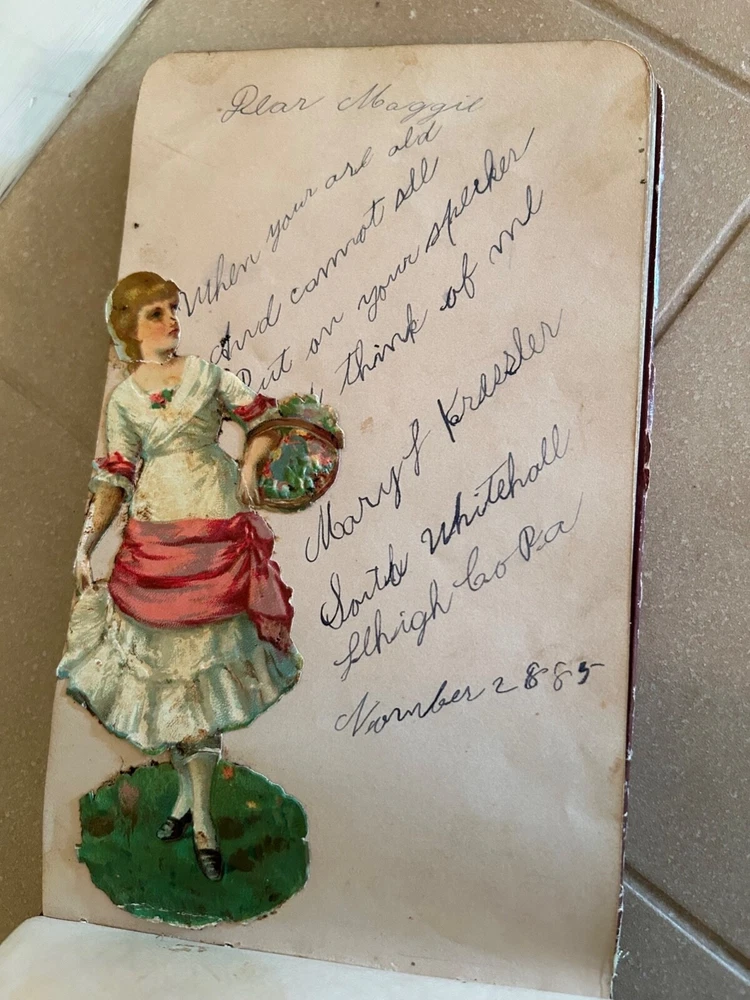 Dear Maggie
When your are old
And cannot see
Put on your specker
think of me
Mary J Kressler
South Whitehall
Lehigh Co Pa
Nomber 2 885